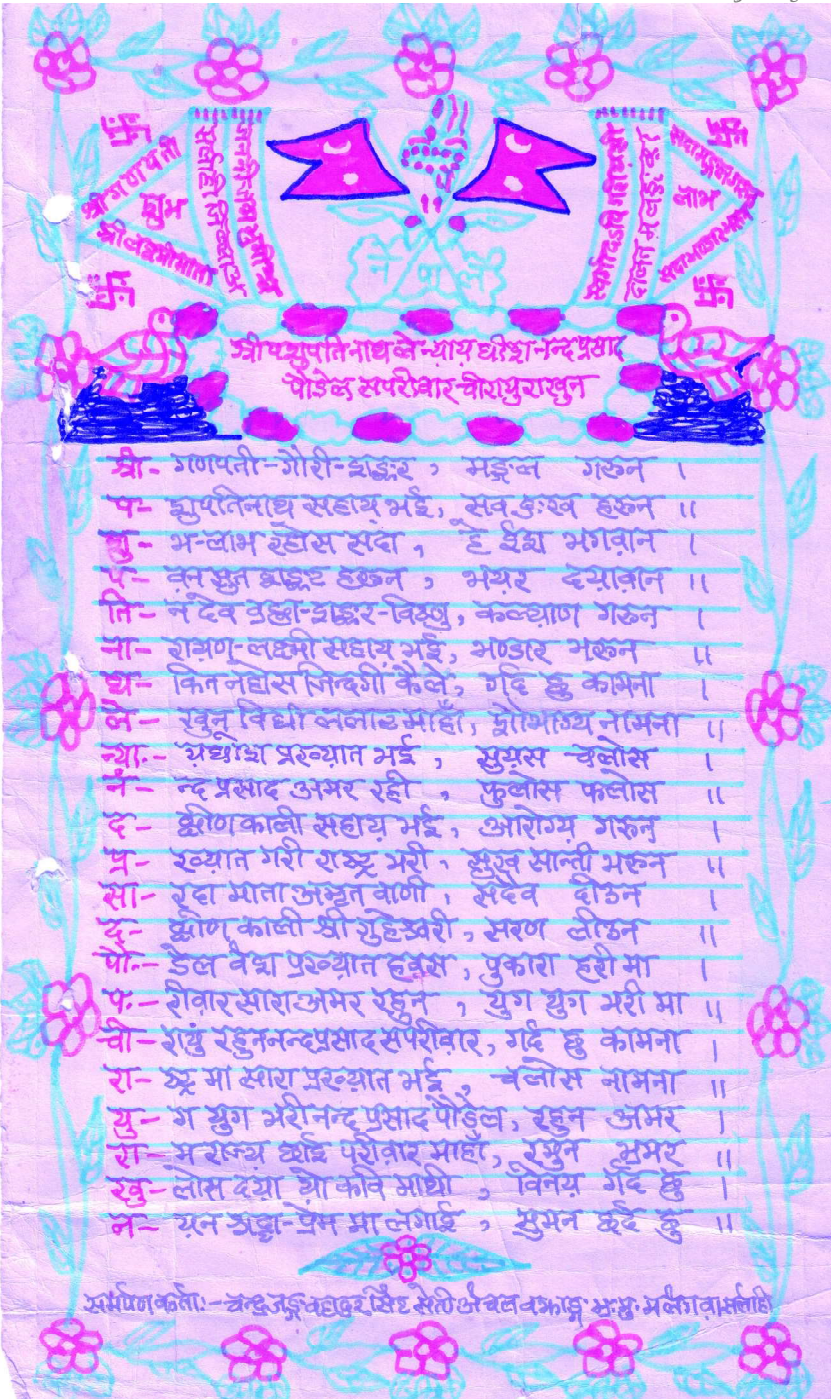 श्री गणपती
शुभ
श्री लक्ष्मी माता
जननी जन्म
लाभ
नेपाल
श्रीपशुपतिनाथले न्यायधीश नन्दप्रसाद
पौडेल सपरीवार चीरायु राखुन
श्री- गणपती-गौरी-शङ्कर, मङ्गल गरून ।
प- शुपतिनाथ सहाय भई, सव दुःख हरून ॥
शु- भ-लाभ रहोस सदा, हे ईश भगवान ।
प- वन सुत शङ्कट हरून, भयर दयावान ॥
ति- न देव व्रह्मा-शङ्कर-विष्णु, कल्याण गरून ।
ना- रायण-लक्ष्मी सहाय भई, भण्डार भरून ॥
थ- कित नहोस जिन्दगी कैले, गर्द छु कामना ।
ले- खुन विधी ललाट माहाँ, शौभाग्य नामना ॥
न्या- यधीश प्रख्यात भई, सुयस चलोस ।
नं- न्द प्रसाद अमर रही, फुलोस फलोस ॥
द- क्षीण काली सहाय भई, आरोग्य गरून ।
प्र- ख्यात गरी राष्ट्र भरी, सुख सान्ती भरून ॥
सा- रदा माता अमृत वाणी, सदैव दीउन ।
द- क्षीण काली श्री गुहेश्वरी, सरण लीउन ॥
पौ- डेल वंश प्रख्यात हवस, पुकारा हरी मा ।
प- रीवार सारा अमर रहुन, युग युग भरी मा ॥
ची- रायुं रहुन नन्दप्रसाद सपरीवार, गर्द छु कामना ।
रा- ष्ट्र मा सारा प्रख्यात भई, चलोस नामना ॥
यु- ग युग भरी नन्द प्रसाद पौडेल, रहुन अमर ।
रा- म राज्य छाई परीवार माहाँ, रमुन भ्रमर ॥
खु- लोस दया यो कवि माथी, विनय गर्द छु ।
न- यन श्रद्धा-प्रेम मा लगाई, सुमन छर्द छु ॥
सर्मपण कर्ताः- चन्द्र जङ्ग वहादुर सिंह सेती अंचल वझाङ्ग